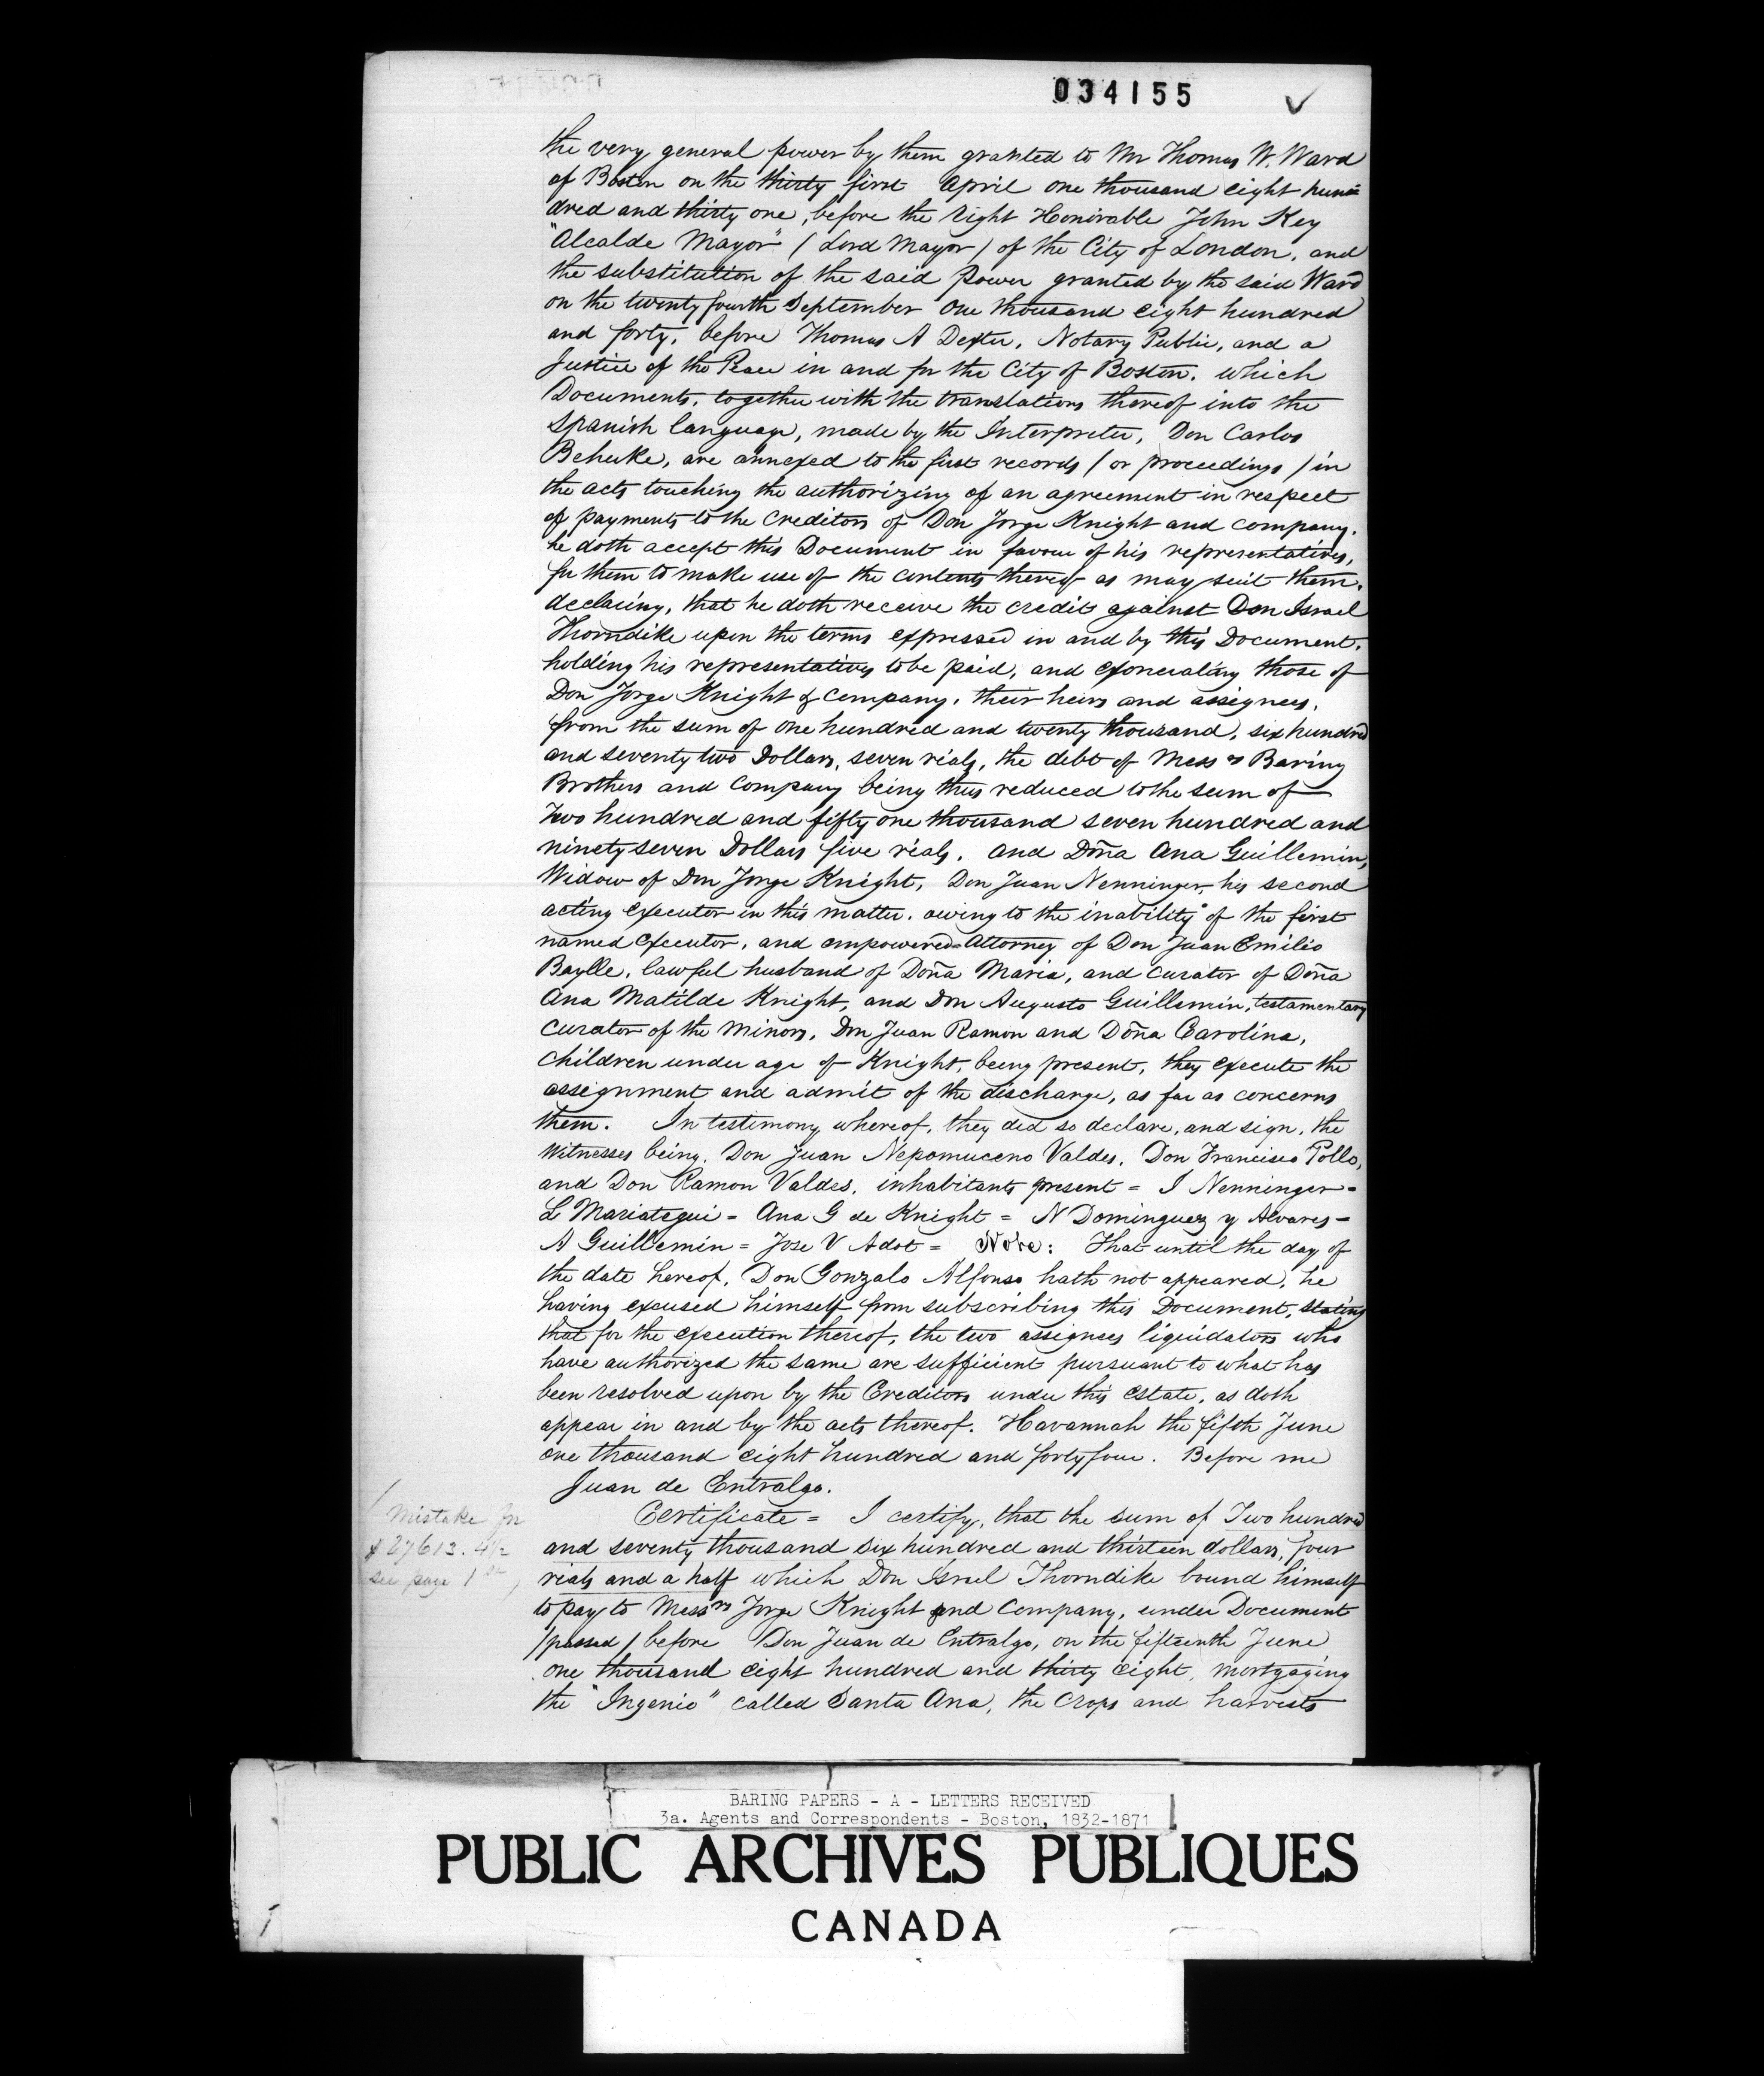 034155
the very general power by them granted to Mr Thomas W. Ward
of Boston on the thirty first April one thousand eight hun=
dred and thirty one, before the Right Honorable John Key
"Alcalde Mayor" (Lord Mayor) of the City of London, and
the substitution of the said Power granted by the said Ward
on the twenty fourth September One thousand eight hundred
and forty, before Thomas A Dexter, Notary Public, and a
Justice of the Peace in and for the City of Boston. which
Documents, together with the translations thereof into the
Spanish language, made by the Interpreter, Don Carlos
Behuke, are annexed to the first records (or proceedings) in
the acts touching the authorizing of an agreement in respect
of payments to the Creditors of Don Jorge Knight and company.
he doth accept this Document in favour of his representatives,
for them to make use of the contents thereof as may suit them,
declaring, that he doth receive the credit against Don Israel
Thorndike upon the terms expressed in and by this Document.
holding his representatives to be paid, and exonerating those of
Don Jorge Knight & Company, their heirs and assignees,
from the sum of One hundred and twenty thousand, six hundred
and seventy two Dollars, seven rials, the debt of Messrs Baring
Brothers and Company being thus reduced to the sum of
Two hundred and fifty one thousand seven hundred and
ninety seven Dollars five rials. and Doña Ana Guillemin,
Widow of Don Jorge Knight, Don Juan Nenninger, his second
acting Executor in this matter. owing to the inability of the first
named Executor, and empowered=Attorney of Don Juan Emilio
Baylle, lawful husband of Doña Maria, and Curator of Doña
Ana Matilde Knight, and Don Augusto Guillemin, testamentary
Curator of the Minors, Don Juan Ramon and Doña Carolina,
Children under age of Knight, being present, they execute the
assignment and admit of the discharge, as far as concerns
them. In testimony whereof, they did so declare, and sign, the
Witnesses being, Don Juan Nepomuceno Valdes, Don Francisco Pollo,
and Don Ramon Valdes, inhabitants present = I Nenninger =
L Mariategui = Ana G de Knight = N Dominguez y Alvares =
A Guillemin = Jose V Adot = Note: That until the day of
the date hereof, Don Gonzalo Alfonso hath not appeared, he
having excused himself from subscribing this Document, stating
that for the execution thereof, the two assignees liquidators who
have authorized the same are sufficient pursuant to what has
been resolved upon by the Creditors under this Estate, as doth
appear in and by the acts thereof. Havannah the fifth June
one thousand eight hundred and forty four. Before me
Juan de Entralgo.
Certificate = I certify, that the sum of Two hundred
Mistake for
and seventy thousand six hundred and thirteen dollars, four
$27613. 4½
rials and a half which Don Israel Thorndike bound himself
see page 1st
to pay to Messrs Jorge Knight and Company, under Document
(passed) before Don Juan de Entralgo, on the fifteenth June
one thousand eight hundred and thirty eight, mortgaging
the "Ingenio" called Santa Ana, the crops and harvests
BARING PAPERS - A - LETTERS RECEIVED
3a. Agents and Correspondents - Boston, 1832-1871
PUBLIC ARCHIVES PUBLIQUES
CANADA